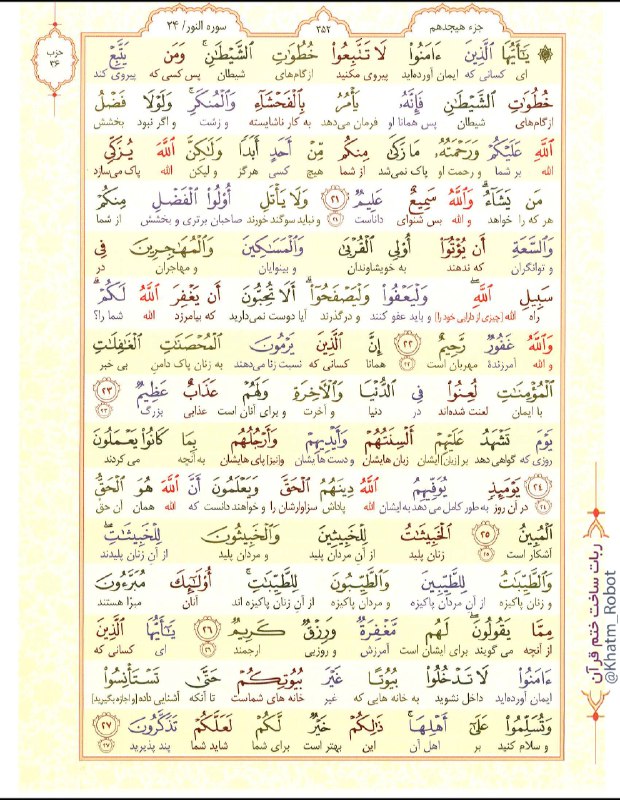 جزء هیجدهم
۳۵۲
سوره النور/ ۲۴
حزب
۳۶
يَـٰٓأَيُّهَا ٱلَّذِينَ ءَامَنُوا۟ لَا تَتَّبِعُوا۟ خُطُوَٰتِ ٱلشَّيْطَـٰنِ ۚ وَمَن يَتَّبِعْ
ای کسانی که ایمان آورده‌اید پیروی مکنید ازگام‌های شیطان پس کسی که پیروی کند
خُطُوَٰتِ ٱلشَّيْطَـٰنِ فَإِنَّهُۥ يَأْمُرُ بِٱلْفَحْشَآءِ وَٱلْمُنكَرِ ۚ وَلَوْلَا فَضْلُ
ازگام‌های شیطان پس همانا او فرمان می‌دهد به کار ناشایسته و زشت و اگر نبود بخشش
ٱللَّهِ عَلَيْكُمْ وَرَحْمَتُهُۥ مَا زَكَىٰ مِنكُم مِّنْ أَحَدٍ أَبَدًا وَلَـٰكِنَّ ٱللَّهَ يُزَكِّى
الله بر شما و رحمت او پاک نمی‌شد از شما هیچ کسی هرگز و لیکن الله پاک می‌سازد
مَن يَشَآءُ ۗ وَٱللَّهُ سَمِيعٌ عَلِيمٌ ۲۱ وَلَا يَأْتَلِ أُو۟لُوا۟ ٱلْفَضْلِ مِنكُمْ
هر که را خواهد و الله بس شنوای داناست ۲۱ و نباید سوگند خورند صاحبان برتری و بخشش از شما
وَٱلسَّعَةِ أَن يُؤْتُوٓا۟ أُو۟لِى ٱلْقُرْبَىٰ وَٱلْمَسَـٰكِينَ وَٱلْمُهَـٰجِرِينَ فِى
و توانگران که ندهند به خویشاوندان و بینوایان و مهاجران در
سَبِيلِ ٱللَّهِ ۖ وَلْيَعْفُوا۟ وَلْيَصْفَحُوٓا۟ ۗ أَلَا تُحِبُّونَ أَن يَغْفِرَ ٱللَّهُ لَكُمْ ۗ
راه الله [چیزی از دارایی خود را] و باید عفو کنند و درگذرند آیا دوست نمی‌دارید که بیامرزد الله شما را؟
وَٱللَّهُ غَفُورٌ رَّحِيمٌ ۲۲ إِنَّ ٱلَّذِينَ يَرْمُونَ ٱلْمُحْصَنَـٰتِ ٱلْغَـٰفِلَـٰتِ
و الله آمرزندهٔ مهربان است ۲۲ همانا کسانی که نسبت زنا می‌دهند به زنان پاک دامنِ بی خبر
ٱلْمُؤْمِنَـٰتِ لُعِنُوا۟ فِى ٱلدُّنْيَا وَٱلْـَٔاخِرَةِ وَلَهُمْ عَذَابٌ عَظِيمٌ ۲۳
با ایمان لعنت شده‌اند در دنیا و آخرت و برای آنان است عذابی بزرگ ۲۳
يَوْمَ تَشْهَدُ عَلَيْهِمْ أَلْسِنَتُهُمْ وَأَيْدِيهِمْ وَأَرْجُلُهُم بِمَا كَانُوا۟ يَعْمَلُونَ
روزی که گواهی دهد بر [زیان] ایشان زبان هایشان و دست هایشان و [نیز] پای هایشان به آنچه می کردند
۲۴ يَوْمَئِذٍ يُوَفِّيهِمُ ٱللَّهُ دِينَهُمُ ٱلْحَقَّ وَيَعْلَمُونَ أَنَّ ٱللَّهَ هُوَ ٱلْحَقُّ
۲۴ در آن روز به طور کامل می‌دهد به ایشان الله پاداش سزاوارشان را و خواهند دانست که الله همان آن حق
ٱلْمُبِينُ ۲۵ ٱلْخَبِيثَـٰتُ لِلْخَبِيثِينَ وَٱلْخَبِيثُونَ لِلْخَبِيثَـٰتِ ۖ
آشکار است ۲۵ زنان پلید از آنِ مردان پلید و مردان پلید از آنِ زنان پلیدند
وَٱلطَّيِّبَـٰتُ لِلطَّيِّبِينَ وَٱلطَّيِّبُونَ لِلطَّيِّبَـٰتِ ۚ أُو۟لَـٰٓئِكَ مُبَرَّءُونَ
و زنان پاکیزه از آنِ مردان پاکیزه و مردان پاکیزه از آنِ زنان پاکیزه اند آنان مبرّا هستند
مِمَّا يَقُولُونَ ۖ لَهُم مَّغْفِرَةٌ وَرِزْقٌ كَرِيمٌ ۲۶ يَـٰٓأَيُّهَا ٱلَّذِينَ
از آنچه می گویند برای ایشان است آمرزش و روزیی ارجمند ۲۶ ای کسانی که
ءَامَنُوا۟ لَا تَدْخُلُوا۟ بُيُوتًا غَيْرَ بُيُوتِكُمْ حَتَّىٰ تَسْتَأْنِسُوا۟
ایمان آورده‌اید داخل نشوید به خانه هایی که غیر خانه های شماست تا آنکه آشنایی داده [و اجازه بگیرید]
وَتُسَلِّمُوا۟ عَلَىٰٓ أَهْلِهَا ۚ ذَٰلِكُمْ خَيْرٌ لَّكُمْ لَعَلَّكُمْ تَذَكَّرُونَ ۲۷
و سلام کنید بر اهل آن این بهتر است برای شما شاید شما پند پذیرید ۲۷
ربات ساخت ختم قرآن
@Khatm_Robot